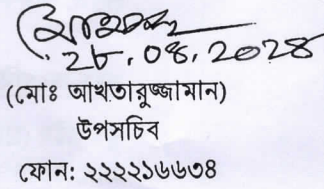 ২৮.০৪.২০২৪
(মোঃ আখতারুজ্জামান)
উপসচিব
ফোন: ২২২২১৬৬৩৪